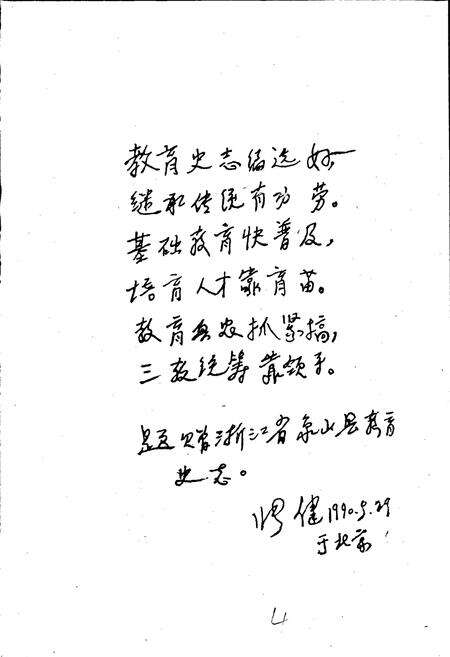 教育史志编选好
继承传统有功劳。
基础教育快普及,
培育人才靠育苗。
教育兴农抓紧搞,
三教统筹靠领手。
题赠浙江省象山县教育
史志。
健 1990.5.29
于北京
4